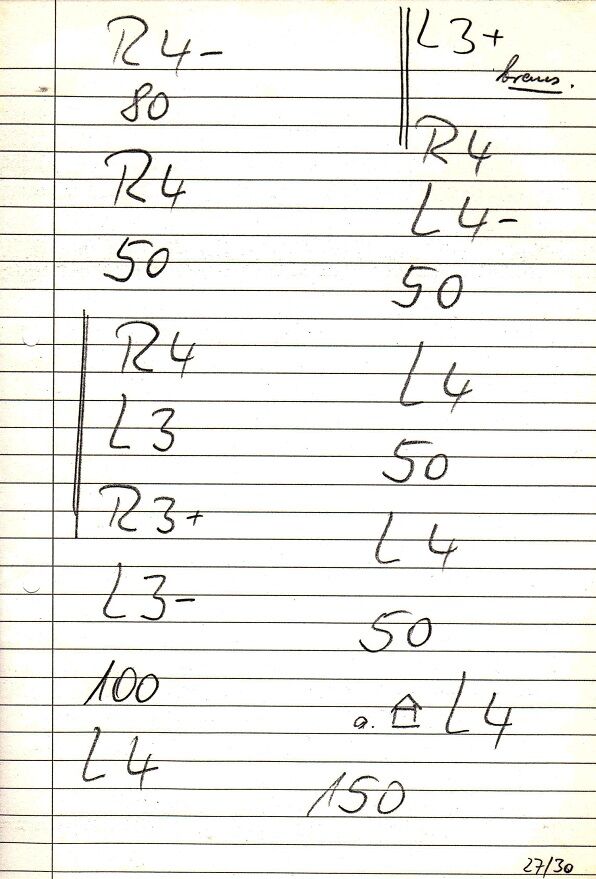 R4-
80
R4
50
R4
L3
R3+
L3-
100
L4
L3+
brems.
R4
L4-
50
L4
50
L4
50
a. L4
150
27/30